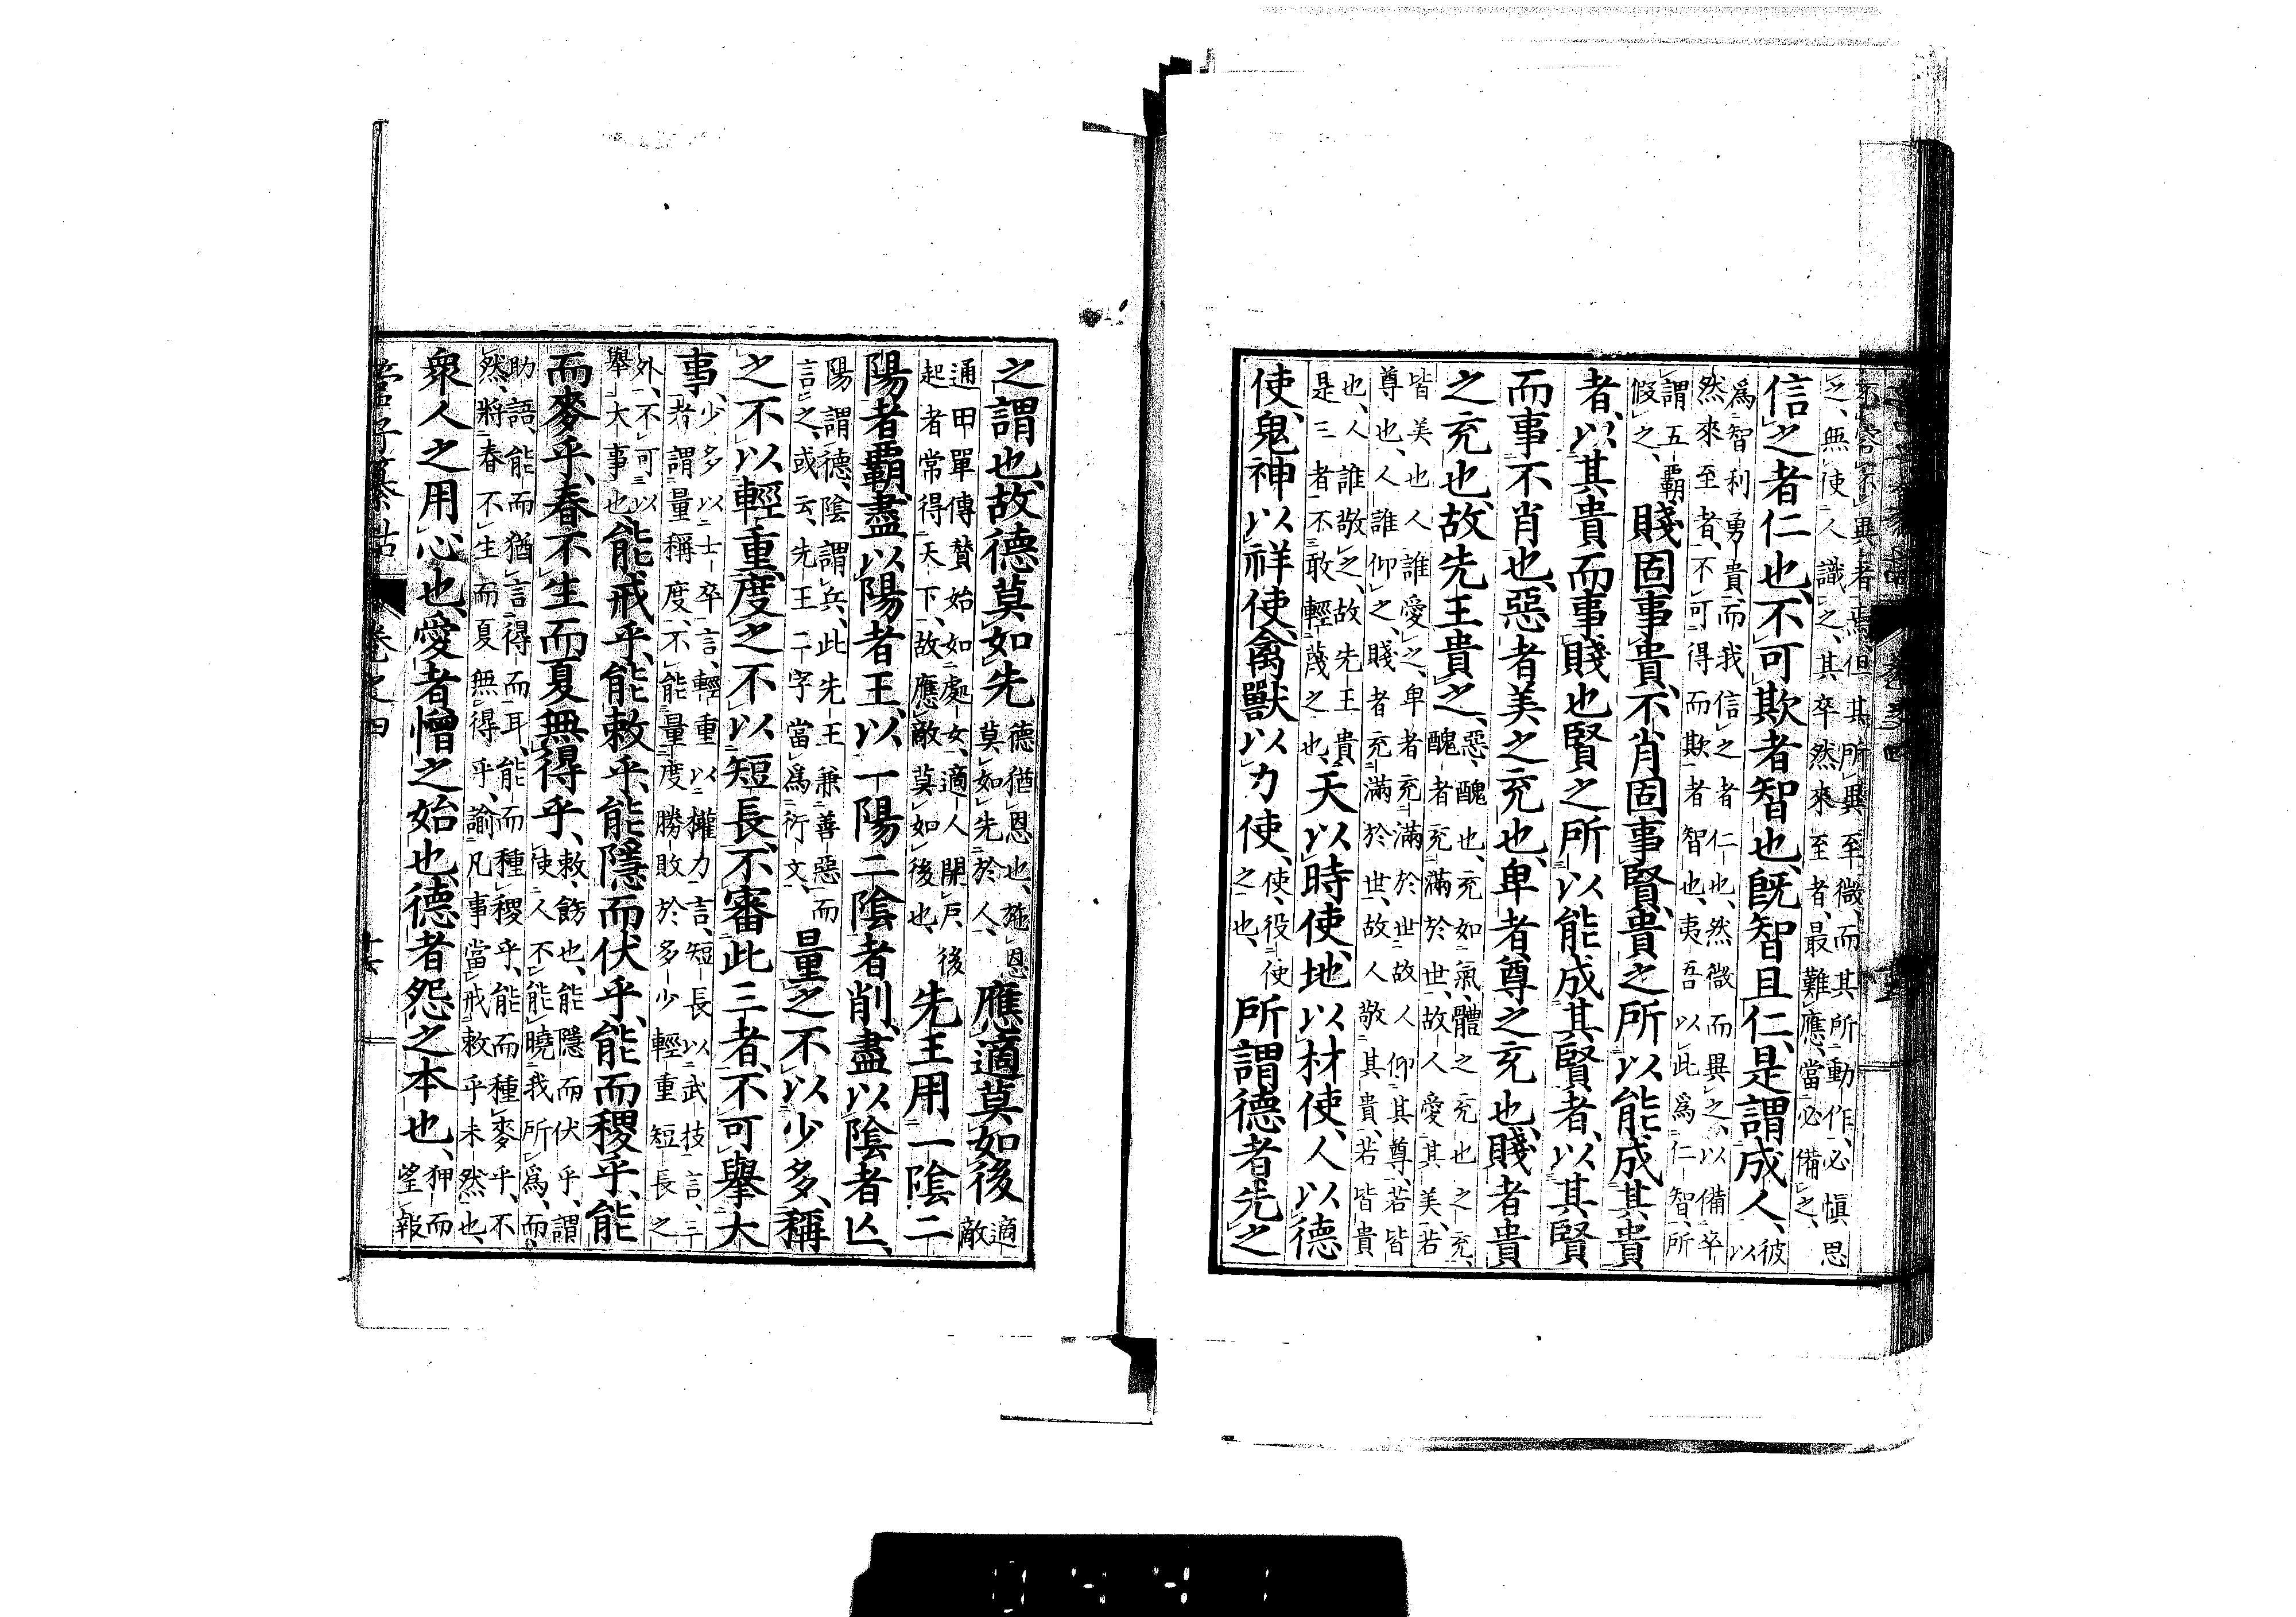 異者焉、但其所異至微、而其所動作、必愼思
之、無使人識之、其卒然來至者、最難應、當必備之、
信之者仁也、不可欺者智也、旣智且仁、是謂成人、彼以
爲智利勇貴、而我信之者仁也、然微而異之、以備卒
然來至者、不可得而欺者智也、夷吾以此爲仁智、所
謂五霸假之、賤固事貴、不肖固事賢、貴之所以能成其貴
者、以其貴而事賤也、賢之所以能成其賢者、以其賢
而事不肖也、惡者美之充也、卑者尊之充也、賤者貴
之充也、故先王貴之、惡、醜也、充如氣、體之充也之充、醜者充滿於世、故人愛其美、若
皆美也人誰愛之、卑者充滿於世、故人仰其尊、若皆
尊也、人誰仰之、賤者充滿於世、故人敬其貴、若皆貴
也、人誰敬之、故先王貴是三者、不敢輕蔑之也、天以時使、地以材使、人以德
使、鬼神以祥使、禽獸以力使、使、役使之也、所謂德者先之
之謂也、故德莫如先德猶恩也、施恩莫如先於人、應適莫如後適敵
通甲單傳贊始如處女、適人開戸、後起者常得天下、故應敵莫如後也、先王用一陰二
陽者霸、盡以陽者王、以一陽二陰者削、盡以陰者亡、
陽謂德、陰謂兵、此先王兼善惡而言之、或云、先王二字當爲衍文、量之不以少多、稱
之不以輕重、度之不以短長、不審此三者、不可擧大
事、少多以士卒言、輕重以權力言、短長以武技言、三者謂量稱度、不能量度勝敗於多少輕重短長之
外、不可以擧大事也能戒乎、能敕乎、能隱而伏乎、能而稷乎、能
而麥乎、春不生而夏無得乎、敕、飭也、能隱而伏乎、謂使人不能曉我所爲、而、
助語、能而猶言得而耳、能而種稷乎、能而種麥乎、不
然、將春不生而夏無得乎、諭凡事當戒敕乎未然也、
衆人之用心也、愛者憎之始也、德者怨之本也、狎而望報
管子纂詁　卷之四